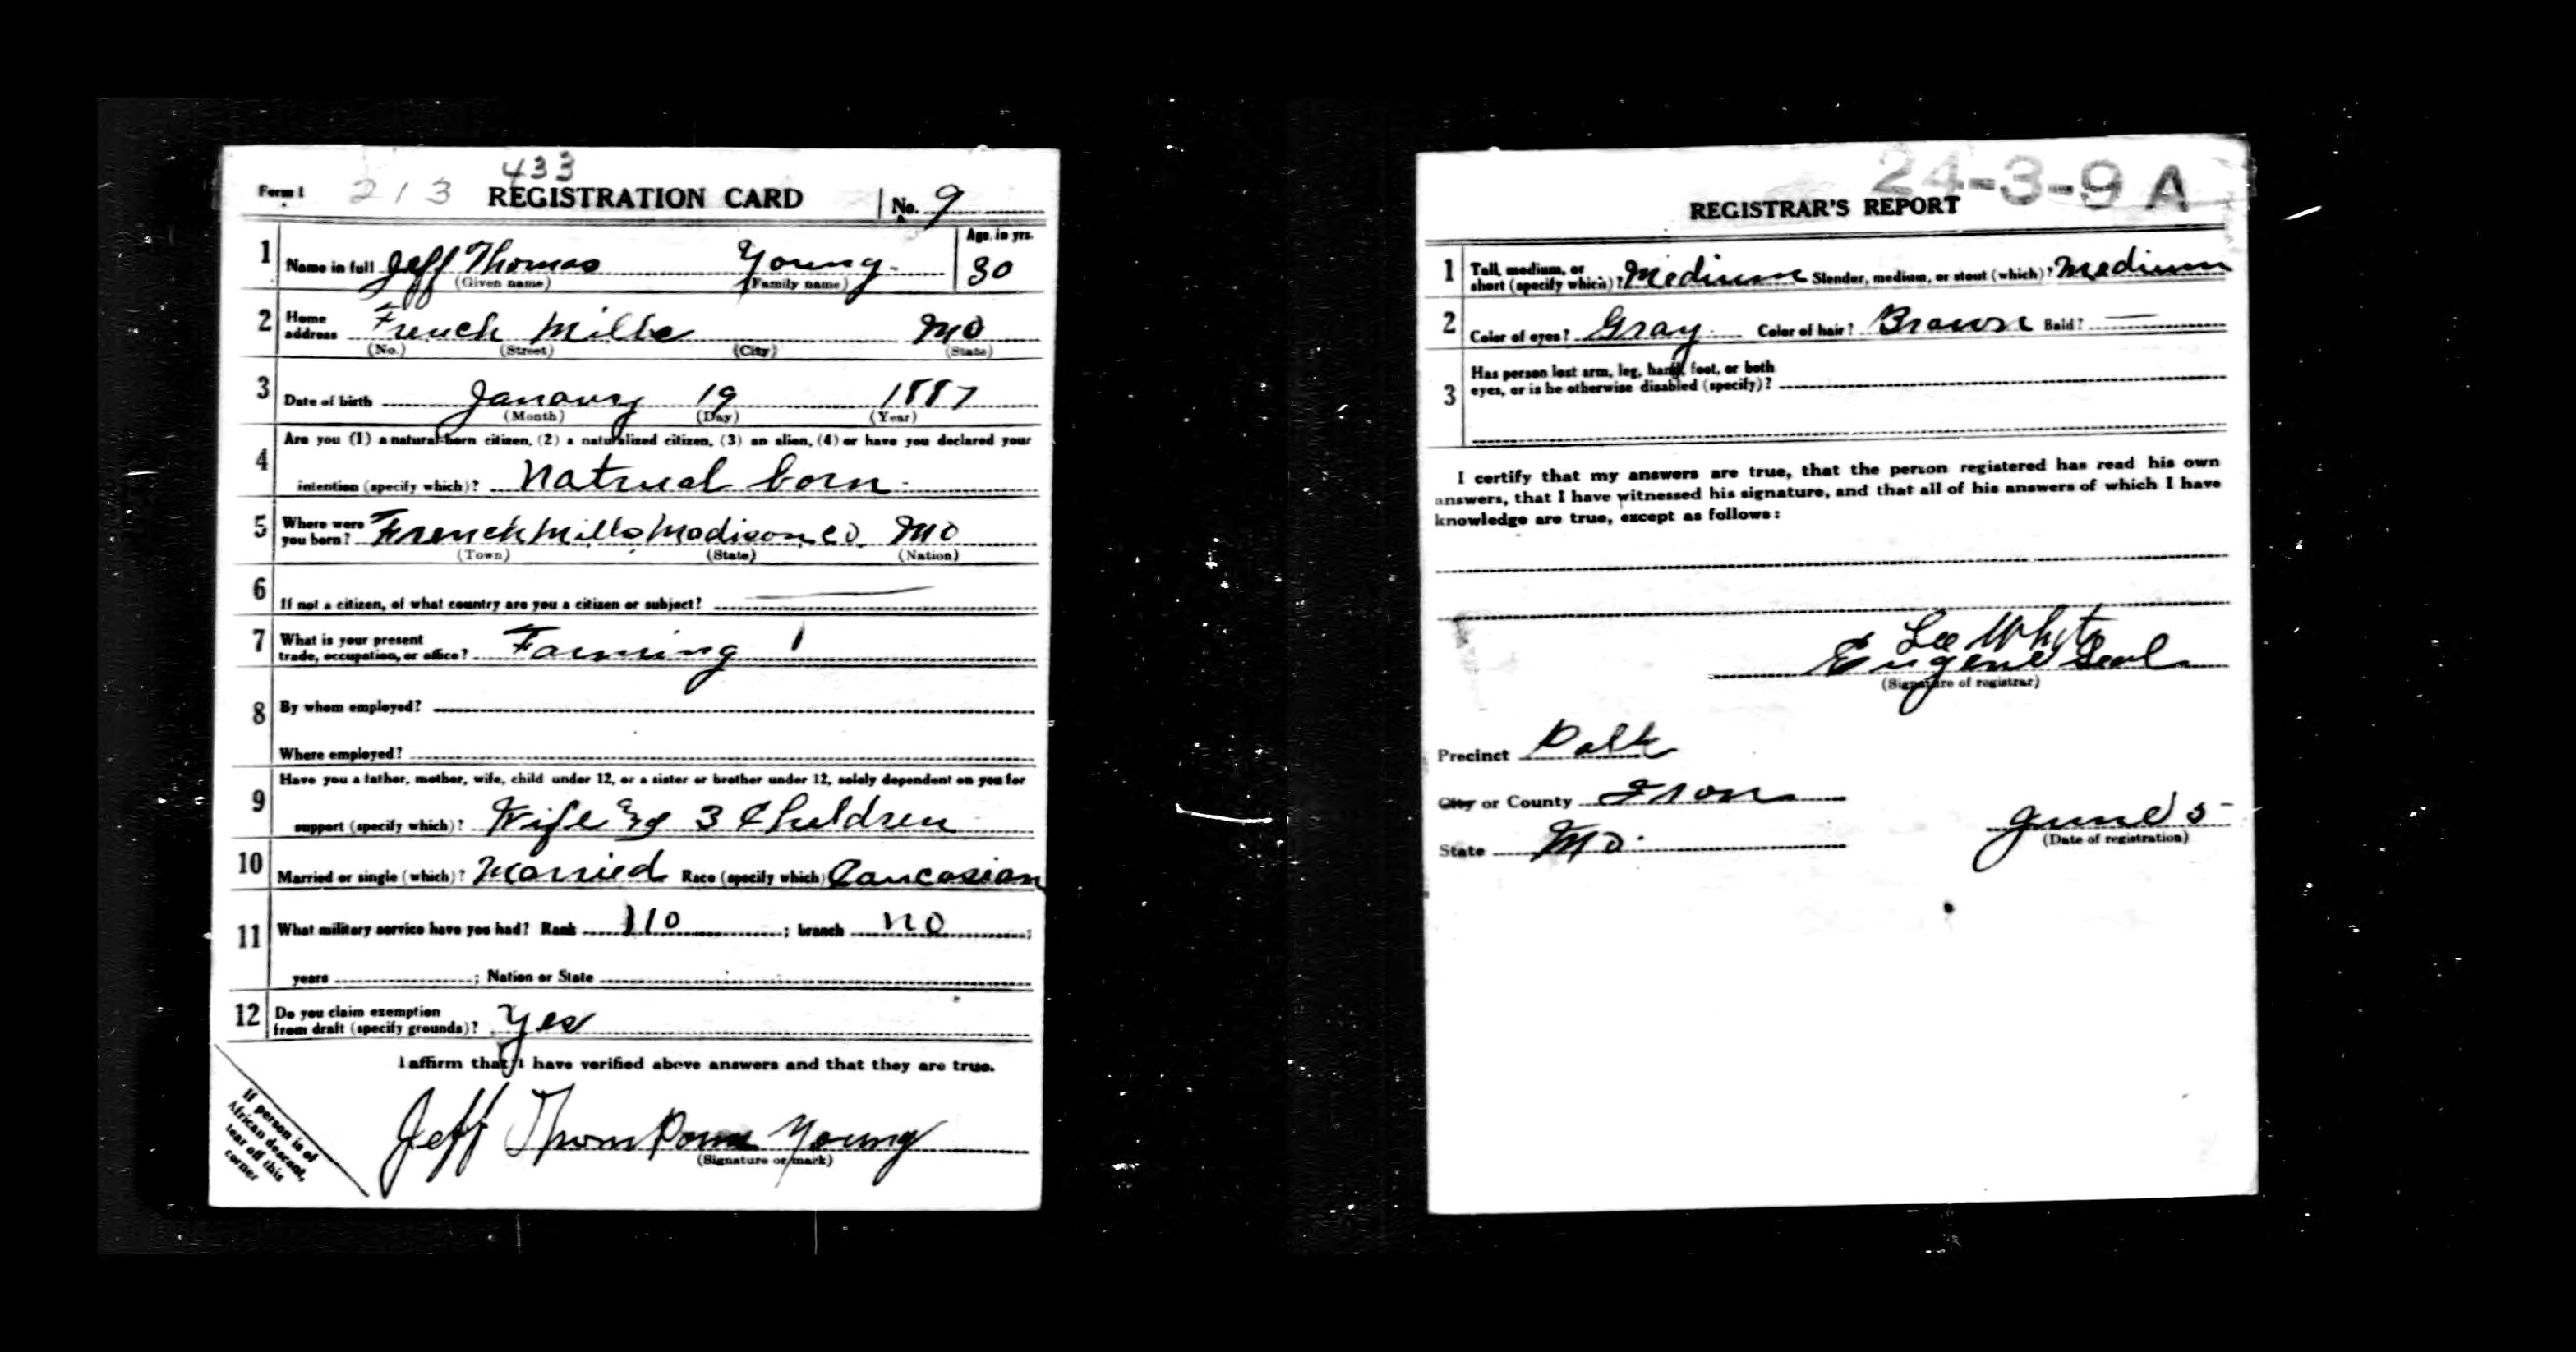 433
Form 1 213 REGISTRATION CARD No. 9
Age, in yrs.
1 Name in full Jeff Thomas Young 30
(Given name) (Family name)
2 Home address French Mills Mo
(No.) (Street) (City) (State)
3 Date of birth January 19 1887
(Month) (Day) (Year)
4 Are you (1) a natural-born citizen, (2) a naturalized citizen, (3) an alien, (4) or have you declared your
intention (specify which)? Natural born
5 Where were you born? French Mills Madison Co. Mo
(Town) (State) (Nation)
6 If not a citizen, of what country are you a citizen or subject? —
7 What is your present
trade, occupation, or office? Farming 1
8 By whom employed?
Where employed?
9 Have you a father, mother, wife, child under 12, or a sister or brother under 12, solely dependent on you for
support (specify which)? Wife & 3 Children
10 Married or single (which)? Married Race (specify which) Caucasian
11 What military service have you had? Rank no ; branch no ;
years ; Nation or State
12 Do you claim exemption
from draft (specify grounds)? Yes
I affirm that I have verified above answers and that they are true.
Jeff Young
(Signature or mark)
If person is of
African descent,
tear off this
corner
24-3-9 A
REGISTRAR'S REPORT
1 Tall, medium, or
short (specify which)? Medium Slender, medium, or stout (which)? Medium
2 Color of eyes? Gray Color of hair? Brown Bald? —
3 Has person lost arm, leg, hand, foot, or both
eyes, or is he otherwise disabled (specify)?
I certify that my answers are true, that the person registered has read his own
answers, that I have witnessed his signature, and that all of his answers of which I have
knowledge are true, except as follows:
Lee White
Eugene
(Signature of registrar)
Precinct
City or County Iron
State Mo.
June 5
(Date of registration)